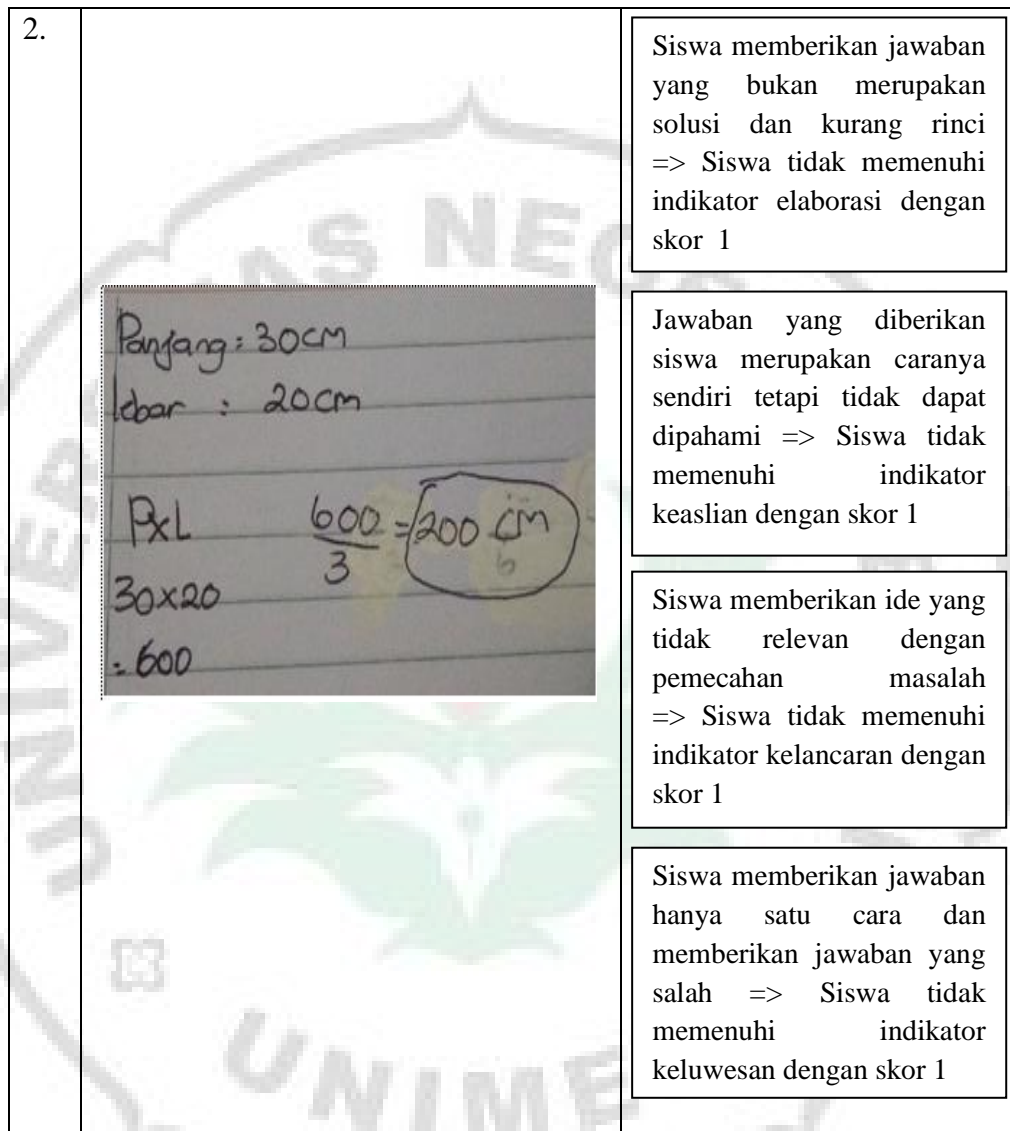 2.
Siswa memberikan jawaban
yang bukan merupakan
solusi dan kurang rinci
=> Siswa tidak memenuhi
indikator elaborasi dengan
skor 1
Panjang : 30cm
lebar : 20cm
PxL
30x20
: 600
600
3
= 200 cm
Jawaban yang diberikan
siswa merupakan caranya
sendiri tetapi tidak dapat
dipahami => Siswa tidak
memenuhi indikator
keaslian dengan skor 1
Siswa memberikan ide yang
tidak relevan dengan
pemecahan masalah
=> Siswa tidak memenuhi
indikator kelancaran dengan
skor 1
Siswa memberikan jawaban
hanya satu cara dan
memberikan jawaban yang
salah => Siswa tidak
memenuhi indikator
keluwesan dengan skor 1
UNIME